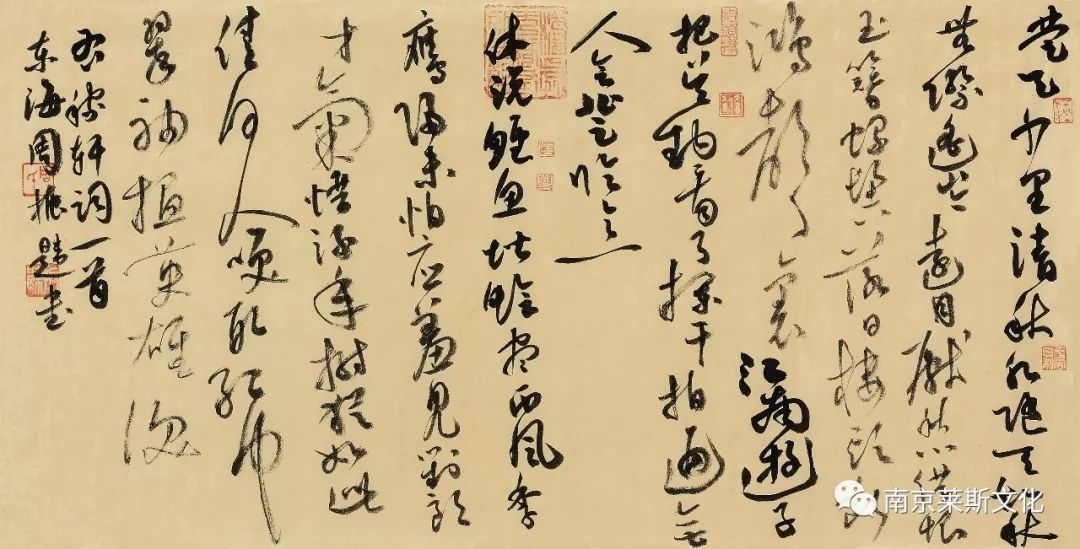 楚天千里清秋水随天去秋
无际遥岑远目献愁供恨
玉簪螺髻落日楼头断
鸿声裏江南游子
把吴钩看了栏干拍遍无
人会登临意
休说鲈鱼堪脍尽西风季
鹰归未怕应羞见刘郎
才氣惜流年树犹如此
倩何人唤取红巾
翠袖揾英雄泪
右稼轩词一首
东海周振题书
南京莱斯文化